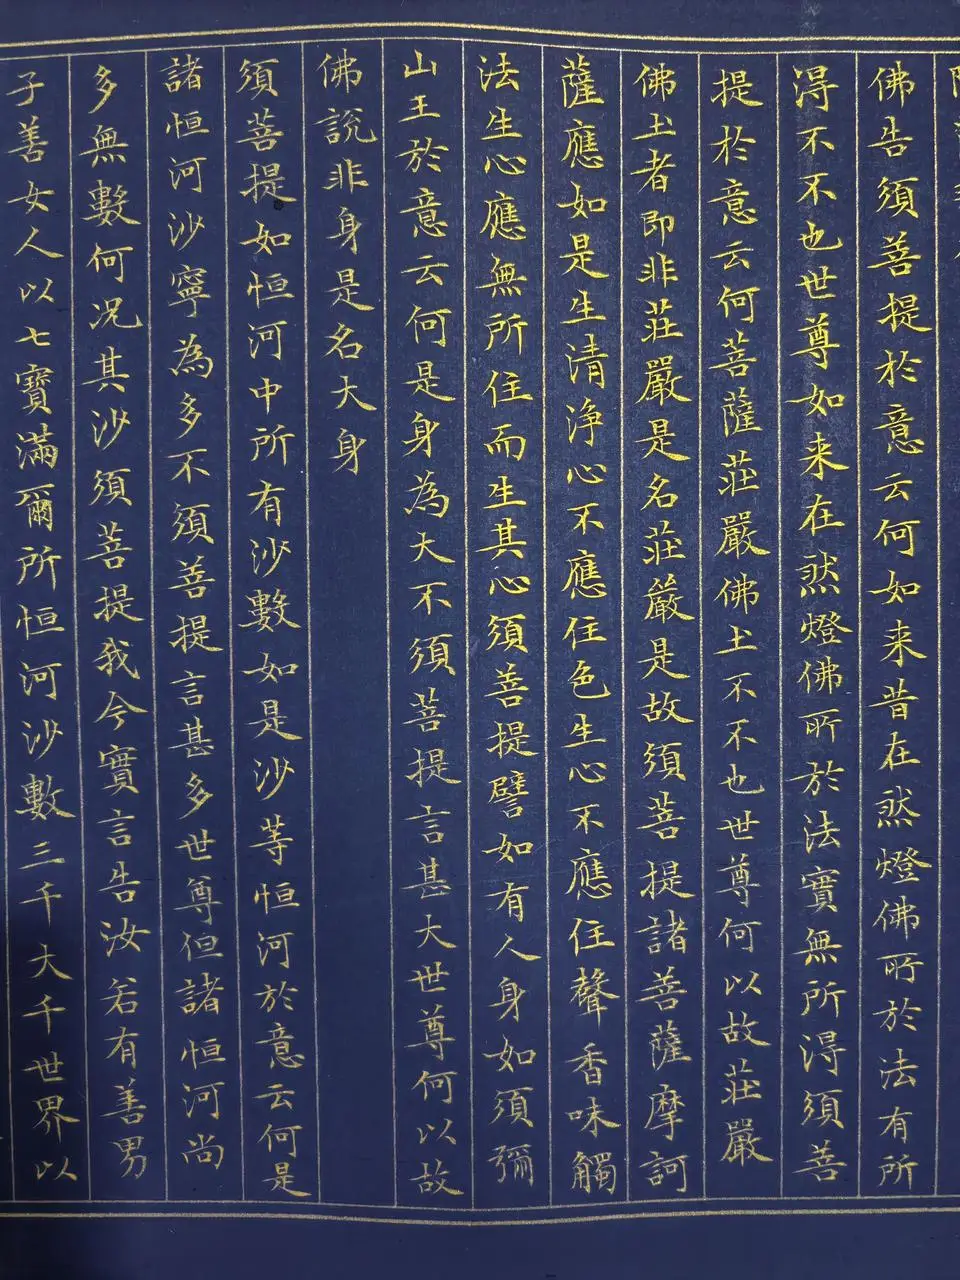 佛告須菩提於意云何如来昔在然燈佛所於法有所
得不不也世尊如来在然燈佛所於法實無所得須菩
提於意云何菩薩莊嚴佛土不不也世尊何以故莊嚴
佛土者即非莊嚴是名莊嚴是故須菩提諸菩薩摩訶
薩應如是生清浄心不應住色生心不應住聲香味觸
法生心應無所住而生其心須菩提譬如有人身如須彌
山王於意云何是身為大不須菩提言甚大世尊何以故
佛說非身是名大身
須菩提如恒河中所有沙數如是沙等恒河於意云何是
諸恒河沙寧為多不須菩提言甚多世尊但諸恒河尚
多無數何況其沙須菩提我今實言告汝若有善男
子善女人以七寶滿爾所恒河沙數三千大千世界以